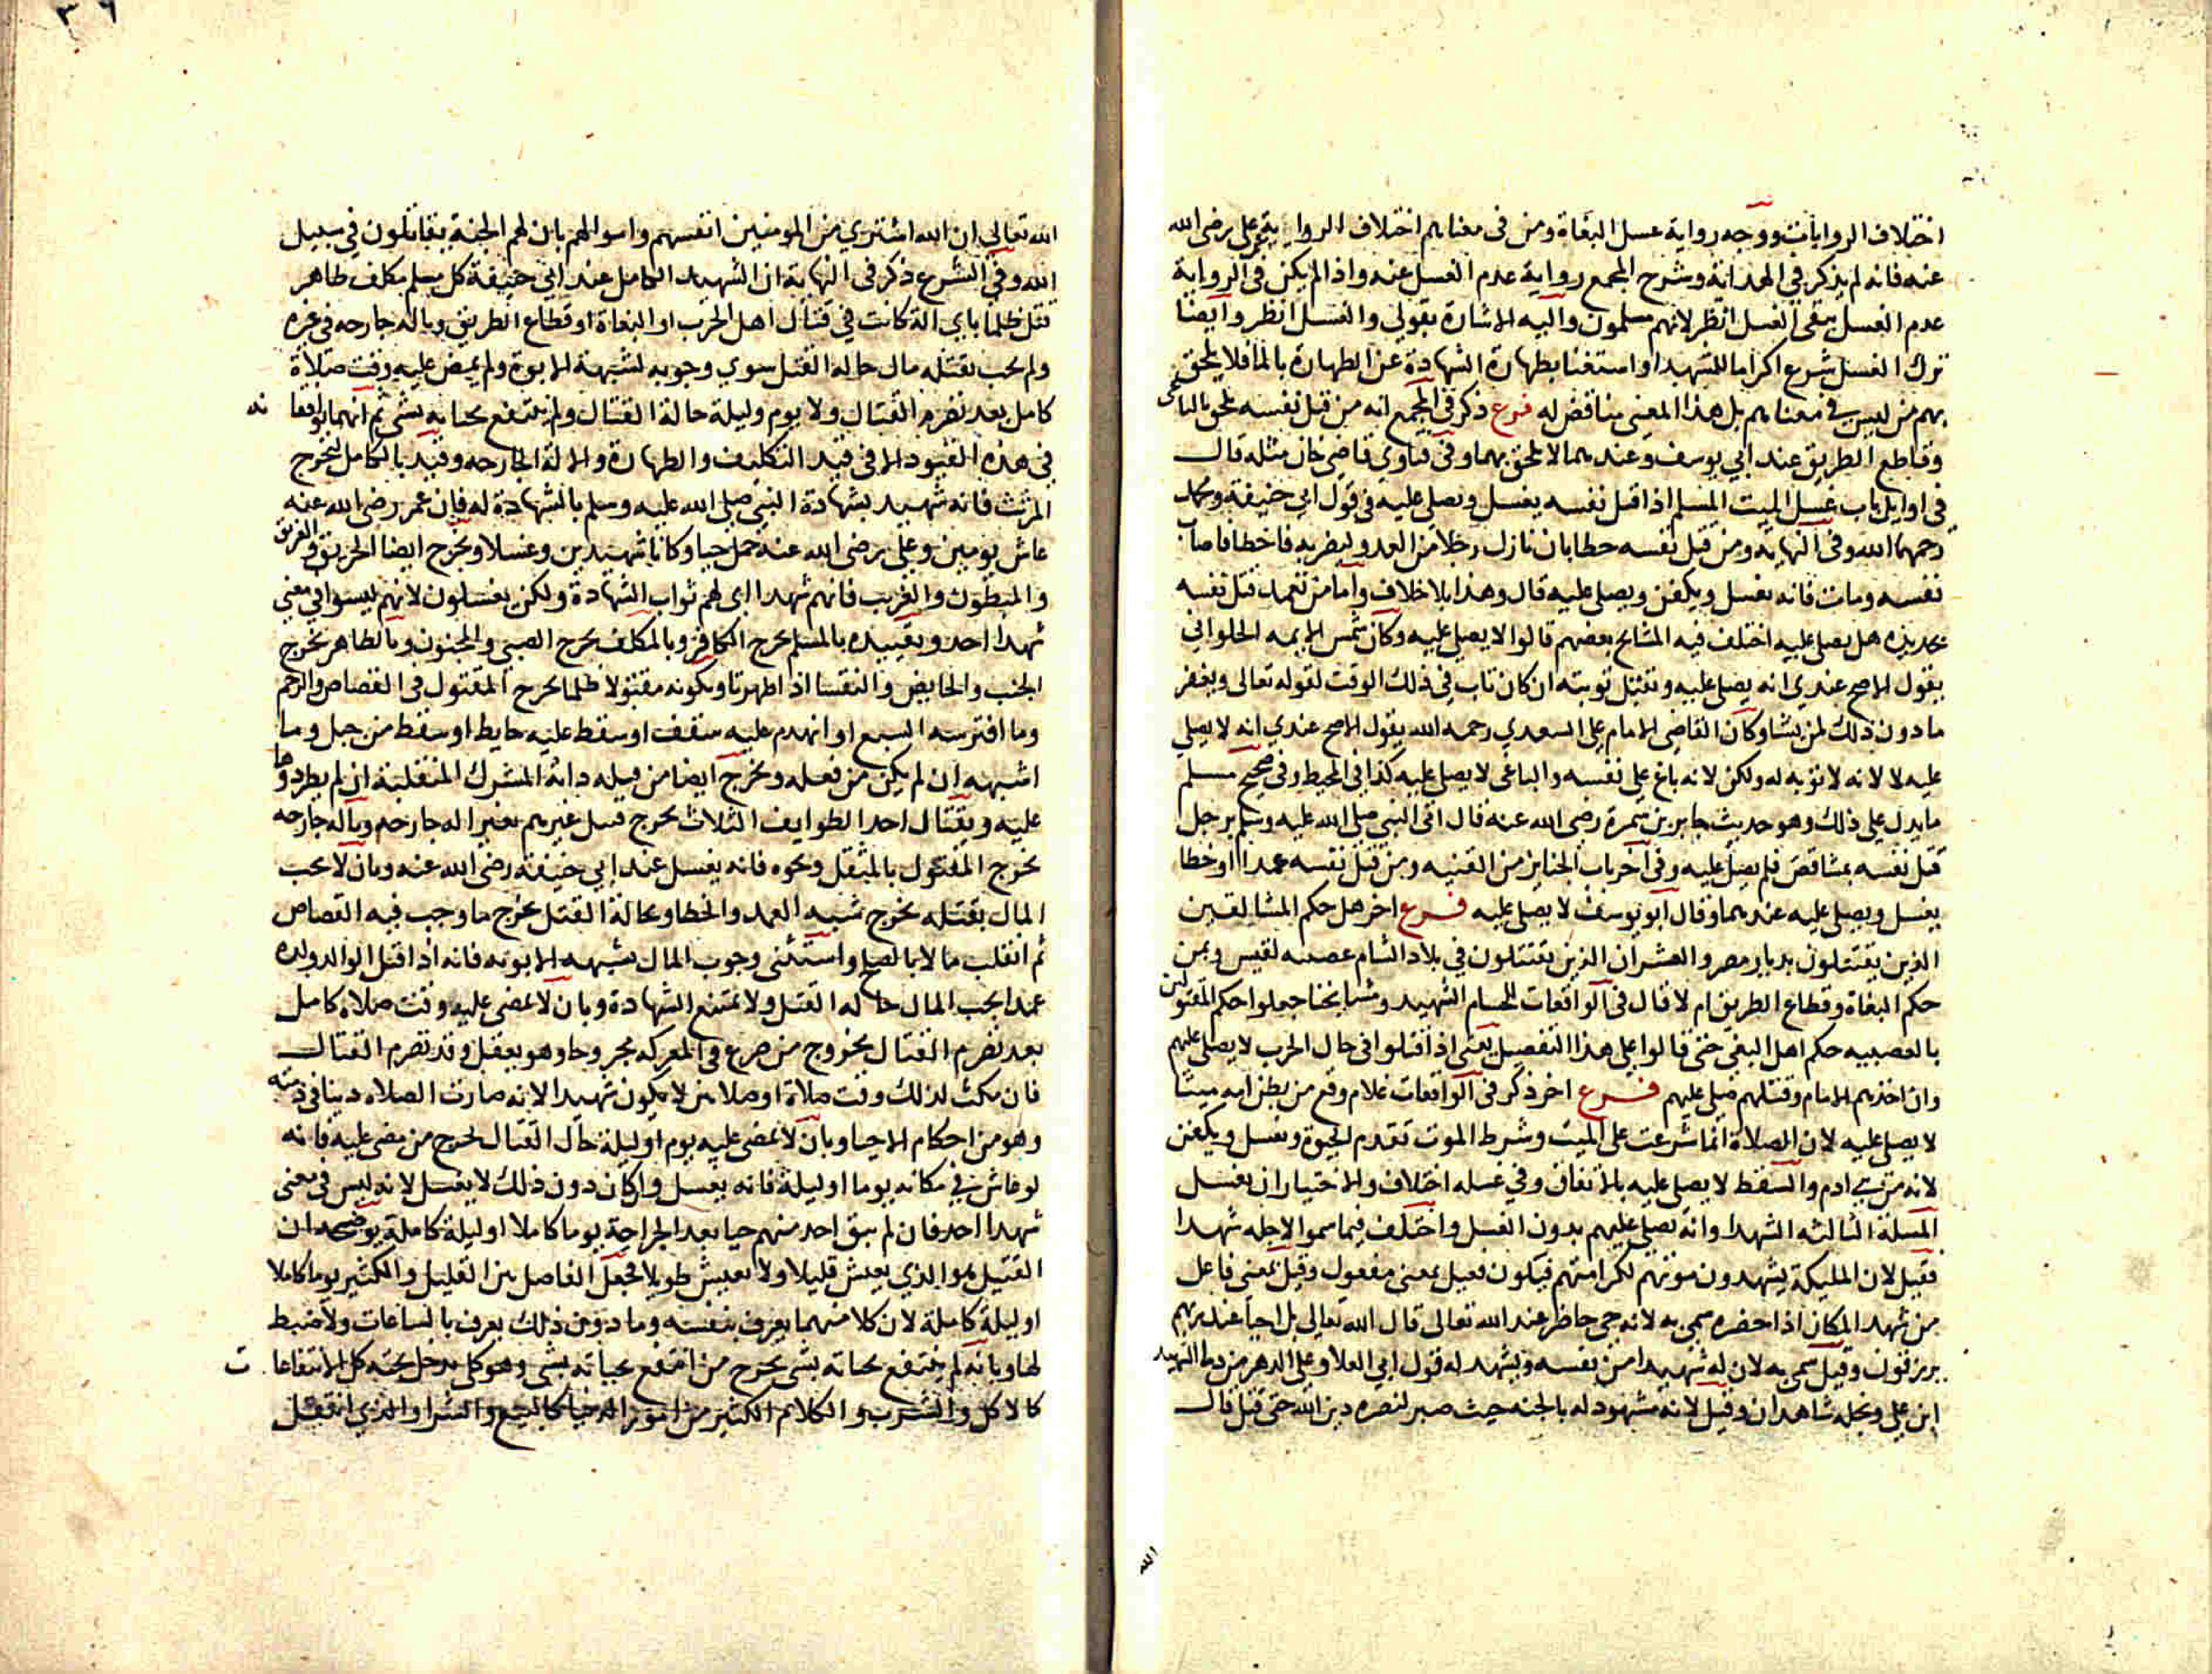 اختلاف الروايات ووجه رواية غسل البغاة ومن فى معناهم اختلاف الرواية عن على رضى الله
عنه فانه لم يذكر في الهداية وشرح المجمع رواية عدم الغسل عنه واذا لم يكن فى الرواية
عدم الغسل يبقى الغسل انظر لانهم مسلمون واليه الاشارة بقولي والغسل انظر وايضا
ترك الغسل شرع اكراما للشهيد او استغنا بطهارة الشهادة عن الطهارة بالما فلا يلحق
بهم من ليس في معناهم بل هذا المعنى يناقض له فرع ذكر فى المجمع انه من قتل نفسه يلحق بالباغى
وقاطع الطريق عند ابي يوسف وعندهما لا يلحق بهما وفى فتاوي قاضي خان مثله قال
فى اوايل باب غسل الميت المسلم اذا قتل نفسه يغسل ويصلى عليه فى قول ابي حنيفة ومحمد
رحمهما الله وفى النهاية ومن قتل نفسه خطا بان نازل رجلا من العدو ليضربه فاخطا فاصاب
نفسه ومات فانه يغسل ويكفن ويصلى عليه قال وهذا بلا خلاف واما من تعمد قتل نفسه
بحديده هل يصلى عليه اختلف فيه المشايخ بعضهم قالوا لا يصلى عليه وكان شمس الايمه الحلواني
يقول الاصح عندي انه يصلى عليه وتقبل توبته ان كان تاب في ذلك الوقت لقوله تعالى ويغفر
ما دون ذلك لمن يشا وكان القاضى الامام على السعدي رحمه الله يقول الاصح عندي انه لا يصلى
عليه لا لانه لا توبه له ولكن لانه باغ على نفسه والباغى لا يصلى عليه كذا في المحيط وفى صحيح مسلم
ما يدل على ذلك وهو حديث جابر بن سمرة رضى الله عنه قال اتى النبي صلى الله عليه وسلم برجل
قتل نفسه بمشاقص فلم يصل عليه وفى اخر باب الجنايز من القنيه ومن قتل نفسه عمدا او خطا
يغسل ويصلى عليه عندهما وقال ابو يوسف لا يصلى عليه فرع اخر هل حكم المشالقين
الذين يقتتلون بديار مصر والعشران الذين يقتتلون في بلاد الشام عصبه لقيس ويمن
حكم البغاة وقطاع الطريق ام لا قال فى الواقعات للحسام الشهيد ومشايخنا جعلوا حكم المقتولين
بالعصبيه حكم اهل البغى حتى قالوا على هذا التفصيل يعنى اذا قتلوا فى حال الحرب لا يصلى عليهم
وان اخذهم الامام وقتلهم صلى عليهم فرع اخر ذكر فى الواقعات غلام وقع من بطن امه ميتا
لا يصلى عليه لان الصلاة انما شرعت على الميت وشرط الموت تقدم الحيوة ويغسل ويكفن
لانه من بني ادم والسقط لا يصلى عليه بالاتفاق وفى غسله اختلاف والاختيار ان يغسل
المسلة الثالثه الشهدا وانه يصلى عليهم بدون الغسل واختلف فيما سموا لاجله شهدا
فقيل لان المليكة يشهدون موتهم لكرامتهم فيكون فعيل بمعنى مفعول وقيل بمعنى فاعل
من شهد المكان اذا حضره سمى به لانه حى حاضر عند الله تعالى قال الله تعالى بل احيا عند ربهم
يرزقون وقيل سمى به لان له شهيدا من نفسه ويشهد له قول ابي العلا وعلى الدهر من دما الشهيد
ابن على ونجله شاهدان وقيل لانه مشهود له بالجنه حيث صبر لنصره دين الله حتى قتل قال
الله
٣٦
الله تعالى ان الله اشتري من المومنين انفسهم واموالهم بان لهم الجنة يقاتلون في سبيل
الله وفى الشرع ذكر فى النهاية ان الشهيد الكامل عند ابي حنيفة كل مسلم مكلف طاهر
قتل ظلما باي الة كانت في قتال اهل الحرب او البغاة او قطاع الطريق وباله جارحه في غيره
ولم يجب بقتله مال حاله القتل سوي وجوبه لشبهة الابوة ولم يمض عليه وقت صلاة
كامل بعد تصرم القتال ولا يوم وليلة حالة القتال ولم ينتفع بحياته بشى ثم انهما توافقا
فى هذه القيود الا فى قيد التكليف والطهارة والالة الجارحه وقيد بالكامل ليخرج
المرتث فانه شهيد بشهادة النبي صلى الله عليه وسلم بالشهادة له فان عمر رضى الله عنه
عاش يومين وعلى رضى الله عنه حمل حيا وكانا شهيدين وغسلا ويخرج ايضا الحريق والغريق
والمبطون والغريب فانهم شهدا اي لهم ثواب الشهادة ولكن يغسلون لانهم ليسوا في معنى
شهدا احد وتقييده بالمسلم يخرج الكافر وبالمكلف يخرج الصبى والمجنون وبالطاهر يخرج
الجنب والحايض والنفسا اذا طهرتا وبكونه مقتولا ظلما يخرج المقتول فى القصاص والرجم
وما افترسه السبع او انهدم عليه سقف او سقط عليه حايط او سقط من جبل وما
اشبهه ان لم يكن من فعله ويخرج ايضا من قتله دابة المشرك المنفلتة ان لم يطردوها
عليه وبقتال احد الطوايف الثلاث يخرج قتيل غيرهم بغير اله جارحه وباله جارحه
يخرج المقتول بالمثقل ونحوه فانه يغسل عند ابي حنيفة رضى الله عنه وبان لا يجب
المال بقتله يخرج شبه العمد والخطا وبحالة القتل يخرج ما وجب فيه القصاص
ثم انقلب مالا بالصلح واستثنى وجوب المال بشبهه الابوته فانه اذا قتل الوالد ولده
عمدا يجب المال حاله القتل ولا يمتنع الشهادة وبان لا يمضى عليه وقت صلاة كامل
بعد تصرم القتال يخروج من صرع فى المعركه مجروحا وهو يعقل وقد تصرم القتال
فان مكث لذلك وقت صلاة او صلاتين لا يكون شهيدا لانه صارت الصلاه دينا فى ذمته
وهو من احكام الاحيا وبان لا يمضى عليه يوم او ليلة حال القتال يخرج من مضى عليه فانه
لو عاش في مكانه يوما او ليلة فانه يغسل وان كان دون ذلك لا يغسل لانه ليس فى معنى
شهدا احد فان لم يبق احد منهم حيا بعد الجراحة يوما كاملا او ليلة كاملة يوضحه ان
القتيل هو الذي يعيش قليلا ولا يعيش طويلا فجعل الفاصل بين القليل والكثير يوما كاملا
او ليلة كاملة لان كلا منهما يعرف بنفسه وما دون ذلك يعرف بالساعات ولا ضبط
لها وبانه لم ينتفع بحياته بشى يخرج من انتفع بحياته بشى وهو كل يدخل تحته كل الانتفاعات
كالاكل والشرب والكلام الكثير من امور الدنيا كالبيع والشرا والذي انتقل